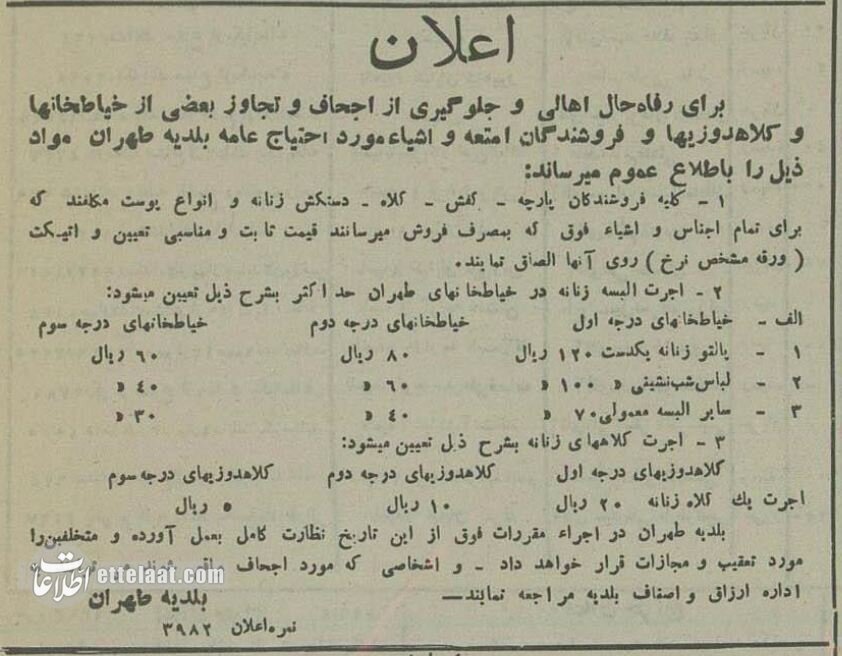 اعلان
برای رفاه حال اهالی و جلوگیری از اجحاف و تجاوز بعضی از خیاطخانها
و کلاهدوزیها و فروشندگان امتعه و اشیاء مورد احتیاج عامه بلدیه طهران مواد
ذیل را باطلاع عموم میرساند:
۱ - کلیه فروشندگان پارچه - کفش - کلاه - دستکش زنانه و انواع پوست مکلفند که
برای تمام اجناس و اشیاء فوق که بمصرف فروش میرسانند قیمت ثابت و مناسبی تعیین و اتیکت
( ورقه مشخص نرخ ) روی آنها الصاق نمایند.
۲ - اجرت البسه زنانه در خیاطخانهای طهران حد اکثر بشرح ذیل تعیین میشود:
الف - خیاطخانهای درجه اول خیاطخانهای درجه دوم خیاطخانهای درجه سوم
۱ - پالتو زنانه یکدست ۱۲۰ ریال ۸۰ ریال ۶۰ ریال
۲ - لباس شب نشینی « ۱۰۰ « ۶۰ « ۴۰ «
۳ - سایر البسه معمولی ۷۰ « ۴۰ « ۳۰ «
۳ - اجرت کلاههای زنانه بشرح ذیل تعیین میشود:
کلاهدوزیهای درجه اول کلاهدوزیهای درجه دوم کلاهدوزیهای درجه سوم
اجرت یك کلاه زنانه ۲۰ ریال ۱۰ ریال ۵ ریال
بلدیه طهران در اجراء مقررات فوق از این تاریخ نظارت کامل بعمل آورده و متخلفین را
مورد تعقیب و مجازات قرار خواهد داد - و اشخاصی که مورد اجحاف
اداره ارزاق و اصناف بلدیه مراجعه نمایند —
بلدیه طهران
نمره اعلان ۳۹۸۲
اطلاعات ettelaat.com